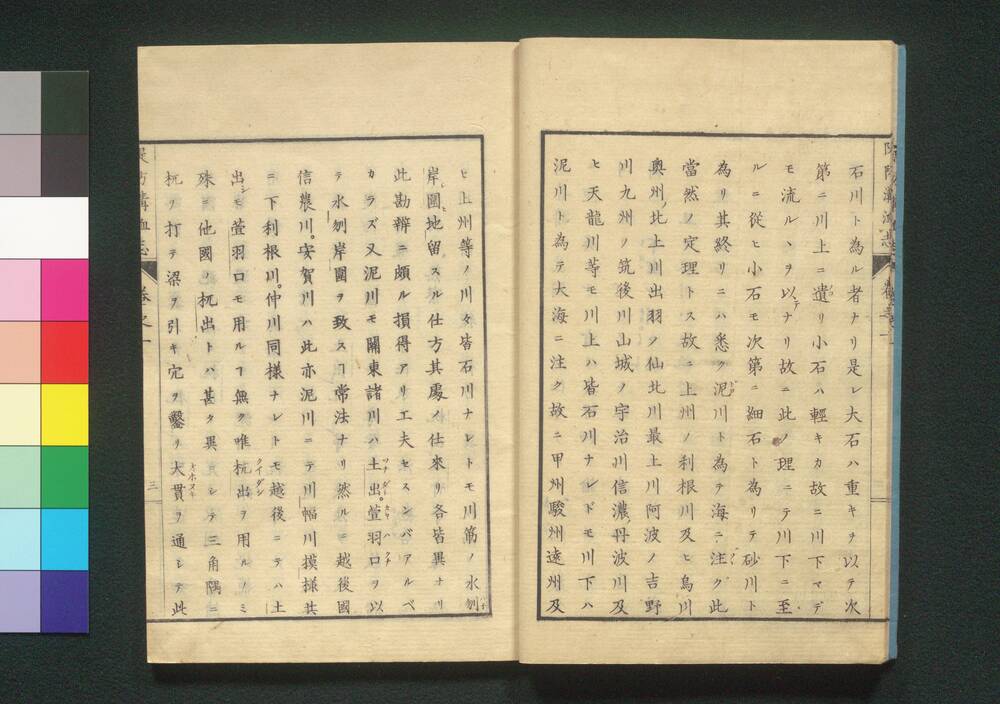 石川ト為ル者ナリ是レ大石ハ重キヲ以テ次
第ニ川上ニ遺リ小石ハ輕キカ故ニ川下マデ
モ流ルヽヲ以テナリ故ニ此ノ理ニテ川下ニ至
ルニ從ヒ小石モ次第ニ細石ト為リテ砂川ト
為リ其終リニハ悉ク泥川ト為テ海ニ注グ此
當然ノ定理トス故ニ上州ノ利根川及ヒ烏川
奥州ノ北上川出羽ノ仙北川最上川阿波ノ吉野
川九州ノ筑後川山城ノ宇治川信濃丹波川及
ヒ天龍川等モ川上ハ皆石川ナレドモ川下ハ
泥川ト為テ大海ニ注ク故ニ甲州駿州遠州及
ヒ上州等ノ川々皆石川ナレトモ川筋ノ水刎
岸圍地留スル仕方其處ノ仕來リ各皆異ナリ
此勘辨ニ頗ル損得アリ工夫セスンバアルベ
カラズ又泥川モ關東諸川ハ土出萱羽口ヲ以
テ水刎岸圍ヲ致スヿ常法ナリ然ルニ越後國
信農川安賀川ハ此亦泥川ニテ川幅川摸樣共
ニ下利根川仲川同樣ナレトモ越後ニテハ土
出シモ萱羽口モ用ルヿ無ク唯杭出ヲ用ルノミ
殊ニ他國ノ杭出トハ甚タ異ニシテ三角隅ニ
杭ヲ打テ梁ヲ引キ穴ヲ鑿リ大貫ヲ通シテ此
三